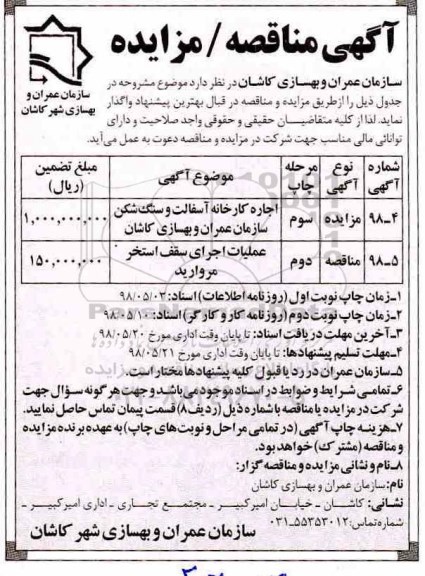 آگهی مناقصه / مزایده
سازمان عمران و
بهسازی شهر کاشان
سازمان عمران و بهسازی کاشان در نظر دارد موضوع مشروحه در
جدول ذیل را ازطریق مزایده و مناقصه در قبال بهترین پیشنهاد واگذار
نماید. لذا از کلیه متقاضیان حقیقی و حقوقی واجد صلاحیت و دارای
توانائی مالی مناسب جهت شرکت در مزایده و مناقصه دعوت به عمل می‌آید.
شماره آگهی نوع آگهی مرحله چاپ موضوع آگهی مبلغ تضمین (ریال)
۴ـ۹۸ مزایده سوم اجاره کارخانه آسفالت و سنگ‌شکن سازمان عمران و بهسازی کاشان ۱,۰۰۰,۰۰۰,۰۰۰
۵ـ۹۸ مناقصه دوم عملیات اجرای سقف استخر مروارید ۱۵۰,۰۰۰,۰۰۰
۱ـزمان چاپ نوبت اول (روزنامه اطلاعات) اسناد: ۹۸/۰۵/۰۳
۲ـزمان چاپ نوبت دوم (روزنامه کار و کارگر) اسناد: ۹۸/۰۵/۱۰
۳ـآخرین مهلت دریافت اسناد: تا پایان وقت اداری مورخ ۹۸/۰۵/۲۰
۴ـمهلت تسلیم پیشنهادها: تا پایان وقت اداری مورخ ۹۸/۰۵/۲۱
۵ـسازمان عمران در رد یا قبول کلیه پیشنهادها مختار است.
۶ـتمامی شرایط و ضوابط در اسناد موجود می‌باشد و جهت هر گونه سؤال جهت
شرکت در مزایده یا مناقصه با شماره ذیل (ردیف ۸) قسمت پیمان تماس حاصل نمایید.
۷ـهزینه چاپ آگهی (در تمامی مراحل و نوبت‌های چاپ) به عهده برنده مزایده
و مناقصه (مشترک) خواهد بود.
۸ـنام و نشانی مزایده و مناقصه گزار:
نام: سازمان عمران و بهسازی کاشان
نشانی: کاشان ـ خیابان امیرکبیر ـ مجتمع تجاری ـ اداری امیرکبیر ـ
شماره تماس: ۵۵۳۵۳۰۱۲ـ۰۳۱
سازمان عمران و بهسازی شهر کاشان